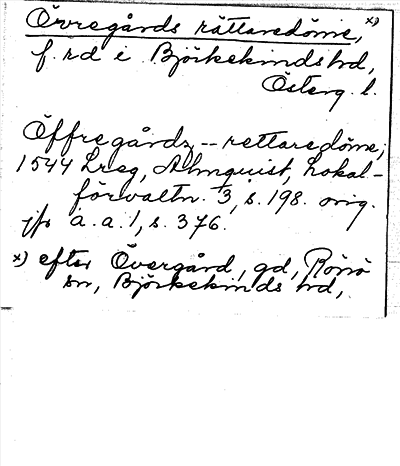 Övregårds rättaredöme, x)
f. rd i Björkekinds hd,
Österg. l.
Öffregårdz -- rettaredöme,
1544 Lreg, Almquist, Lokal-
förvaltn. 3, s. 198. orig.
jfr a. a. 1, s. 376.
x) efter Övergård, gd, Rönö
sn, Björkekinds hd,